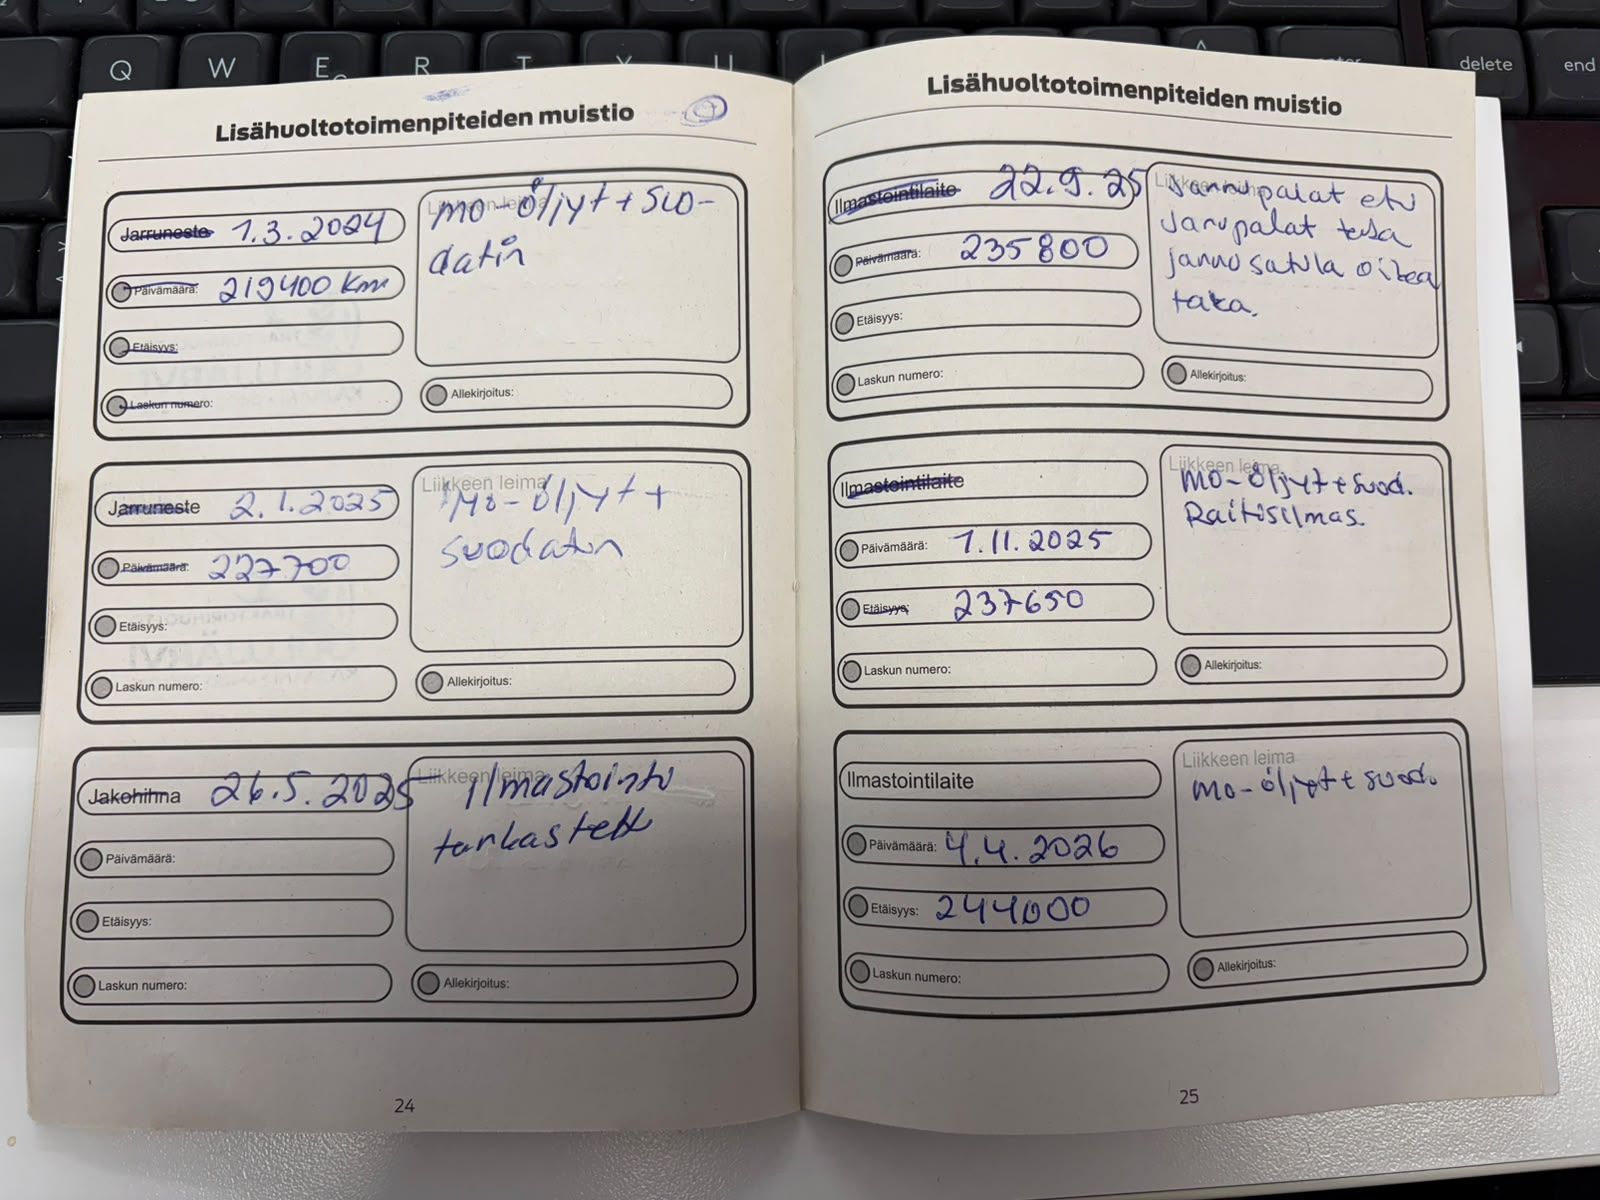 Lisähuoltotoimenpiteiden muistio
Jarruneste 1.3.2024
Päivämäärä: 219400 Km
Etäisyys:
Laskun numero:
Liikkeen leima
mo-öljyt + suo-
datin
Allekirjoitus:
Jarruneste 2.1.2025
Päivämäärä: 227700
Etäisyys:
Laskun numero:
Liikkeen leima
Mo-öljyt +
suodatin
Allekirjoitus:
Jakohihna 26.5.2025
Päivämäärä:
Etäisyys:
Laskun numero:
Liikkeen leima
ilmastointi
tarkastettu
Allekirjoitus:
24
Lisähuoltotoimenpiteiden muistio
Ilmastointilaite 22.9.25
Päivämäärä: 235800
Etäisyys:
Laskun numero:
Liikkeen leima
Jarrupalat etu
Jarupalat taka
jarrusatula oikea
taka.
Allekirjoitus:
Ilmastointilaite
Päivämäärä: 1.11.2025
Etäisyys: 237650
Laskun numero:
Liikkeen leima
mo-öljyt + suod.
Raitisilmas.
Allekirjoitus:
Ilmastointilaite
Päivämäärä: 4.4.2026
Etäisyys: 244000
Laskun numero:
Liikkeen leima
mo-öljyt + suod.
Allekirjoitus:
25
Q W E R T
delete
end